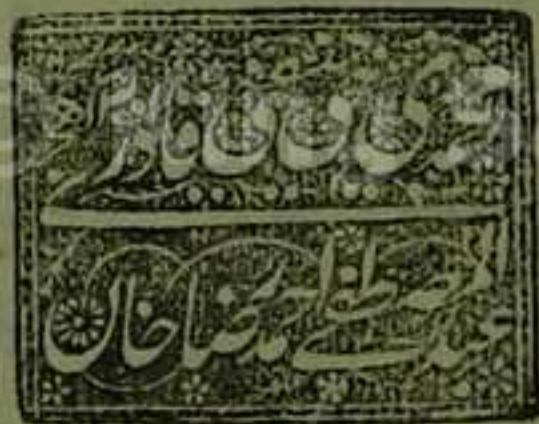 سنی حنفی قادری
عبد المصطفی احمد رضا خان